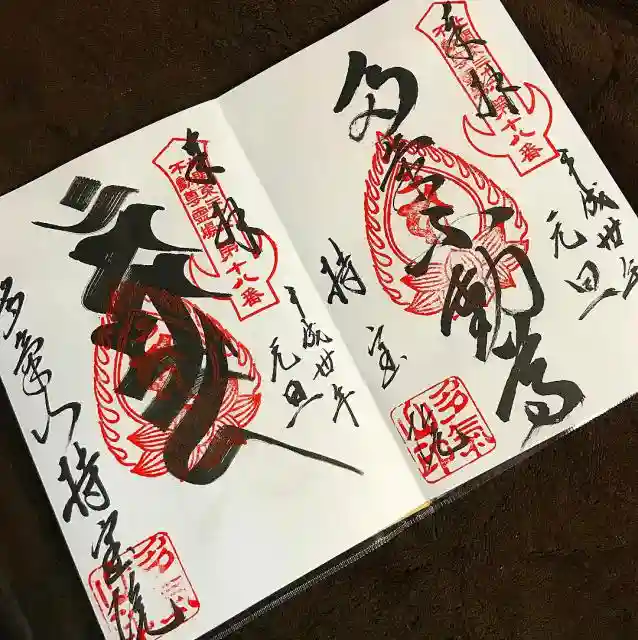 奉拝
第十八番
平成卅年
元旦
多氣不動尊
持宝院
奉拝
不動尊霊場第十八番
平成卅年
元旦
多氣山持宝院